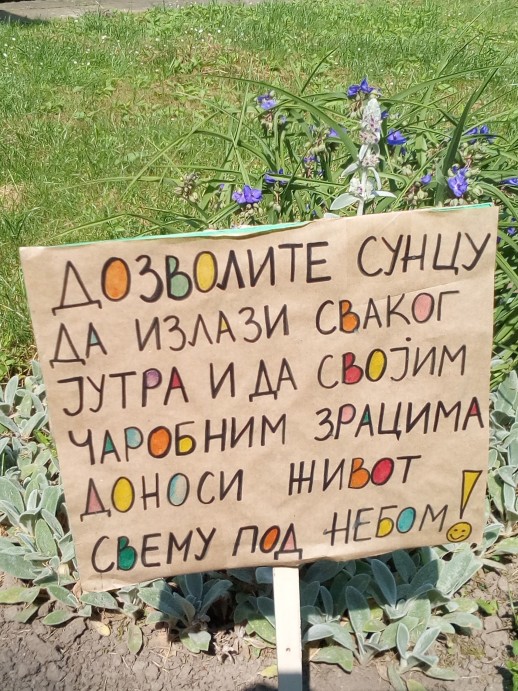 ДОЗВОЛИТЕ СУНЦУ
ДА ИЗЛАЗИ СВАКОГ
ЈУТРА И ДА СВОЈИМ
ЧАРОБНИМ ЗРАЦИМА
ДОНОСИ ЖИВОТ
СВЕМУ ПОД НЕБОМ!